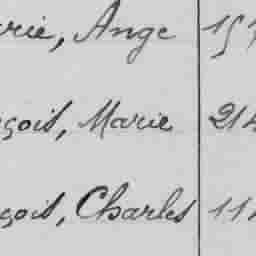 rie, Ange 157
çois, Marie 214
çois, Charles 114